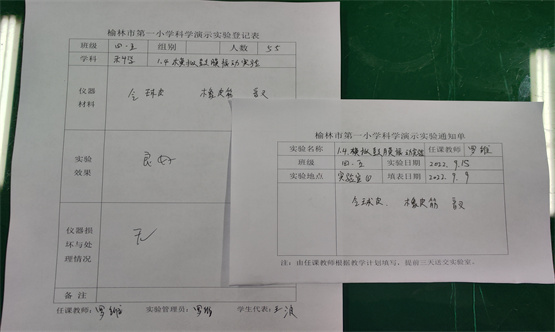 榆林市第一小学科学演示实验登记表
班级 四.五 组别 人数 55
学科 科学 1.4模拟鼓膜振动实验
仪器
材料
橡皮筋 音叉
实验
效果
良好
仪器损
坏与处
理情况
无
备注
任课教师:罗雅 实验管理员:罗雅 学生代表:
榆林市第一小学科学演示实验通知单
实验名称 1.4.模拟鼓膜振动实验 任课教师 罗雅
班级 四.五 实验日期 2022.9.15
实验地点 实验室四 填表日期 2022.9.9
橡皮筋 音叉
注:由任课教师根据教学计划填写,提前三天送交实验室。